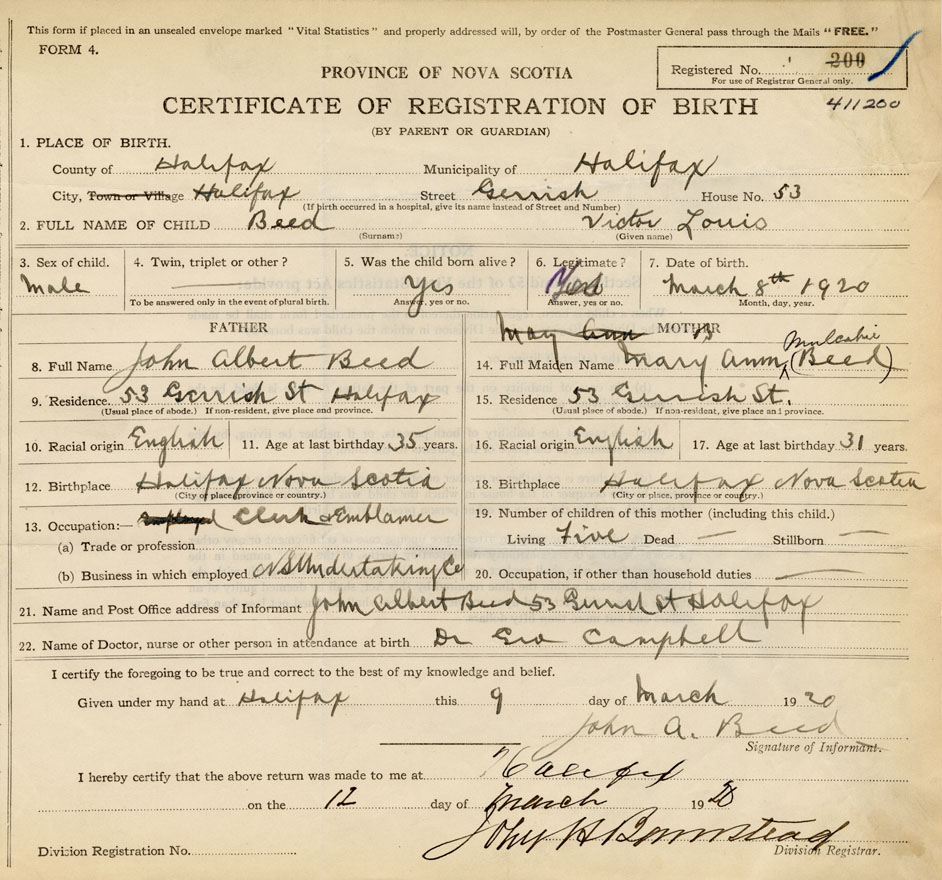 This form if placed in an unsealed envelope marked "Vital Statistics" and properly addressed will, by order of the Postmaster General pass through the Mails "FREE."
FORM 4.
Registered No. 200
For use of Registrar General only.
411200
PROVINCE OF NOVA SCOTIA
CERTIFICATE OF REGISTRATION OF BIRTH
(BY PARENT OR GUARDIAN)
1. PLACE OF BIRTH.
County of Halifax Municipality of Halifax
City, Town or Village Halifax Street Gerrish House No. 53
(If birth occurred in a hospital, give its name instead of Street and Number)
2. FULL NAME OF CHILD Beed Victor Louis
(Surname) (Given name)
3. Sex of child. 4. Twin, triplet or other? 5. Was the child born alive? 6. Legitimate? 7. Date of birth.
Male Yes Yes March 8th 1920
To be answered only in the event of plural birth. Answer, yes or no. Answer, yes or no. Month, day, year.
FATHER
8. Full Name John Albert Beed
9. Residence. 53 Gerrish St Halifax
(Usual place of abode.) If non-resident, give place and province.
10. Racial origin English 11. Age at last birthday 35 years.
12. Birthplace Halifax Nova Scotia
(City or place, province or country.)
13. Occupation:— Clerk & Emblamer
(a) Trade or profession
(b) Business in which employed NS Undertaking Co
May Ann MOTHER
14. Full Maiden Name Mary Ann (Beed)
15. Residence 53 Gerrish St.
(Usual place of abode.) If non-resident, give place and province.
16. Racial origin English 17. Age at last birthday 31 years.
18. Birthplace Halifax Nova Scotia
(City or place, province or country.)
19. Number of children of this mother (including this child.)
Living Five Dead — Stillborn —
20. Occupation, if other than household duties —
21. Name and Post Office address of Informant John Albert Beed 53 Gerrish St Halifax
22. Name of Doctor, nurse or other person in attendance at birth Dr Geo Campbell
I certify the foregoing to be true and correct to the best of my knowledge and belief.
Given under my hand at Halifax this 9 day of March 1920
John A. Beed
Signature of Informant.
I hereby certify that the above return was made to me at Halifax
on the 12 day of March 1920
John H Barnstead
Division Registration No. Division Registrar.